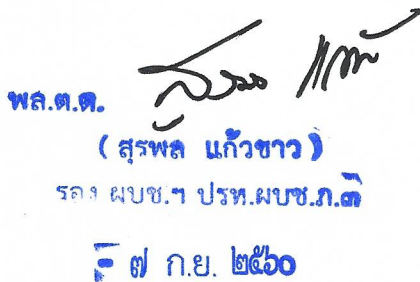 พล.ต.ต.
( สุรพล แก้วขาว )
รอง ผบช.ฯ ปรท.ผบช.ภ.๓
- ๗ ก.ย. ๒๕๖๐